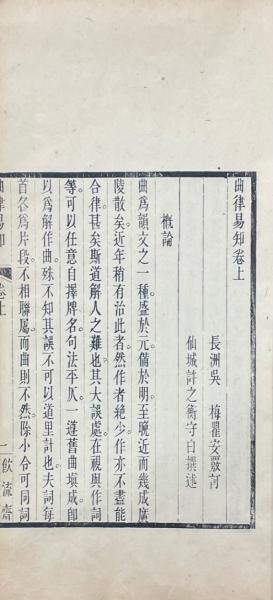 曲律易知卷上
長洲吳 梅瞿安嚴訂
仙城許之衡守白撰述
概論
曲爲韻文之一種。盛於元。備於明。至晚近而幾成廣
陵散矣。近年稍有治此者。然作者絶少。作亦不盡能
合律。甚矣斯道解人之難也。其大誤處。在視與作詞
等。可以任意自擇牌名。句法平仄。一遵舊曲塡成。卽
以爲解作曲。殊不知其誤不可以道里計也。夫詞每
首各爲片段。不相聯屬。而曲則不然。除小令可同詞
曲律易知 卷上 一 飲流齋